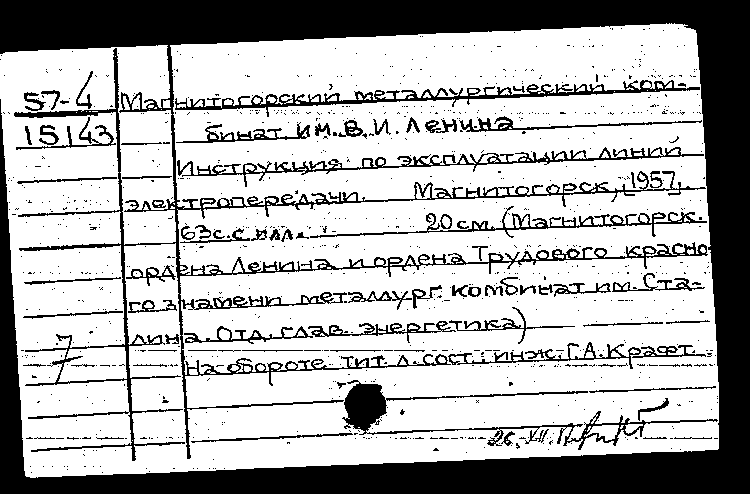 57-4 Магнитогорский металлургический ком-
15143 бинат им. В. И. Ленина.
Инструкция по эксплуатации линий
электропередачи. Магнитогорск, 1957.
63с. с илл. 20 см. (Магнитогорск.
ордена Ленина и ордена Трудового красно-
го знамени металлург. комбинат им. Ста-
лина. Отд. глав. энергетика)
7
На обороте тит. л. сост.: инж. Г. А. Крафт.
26. XII.